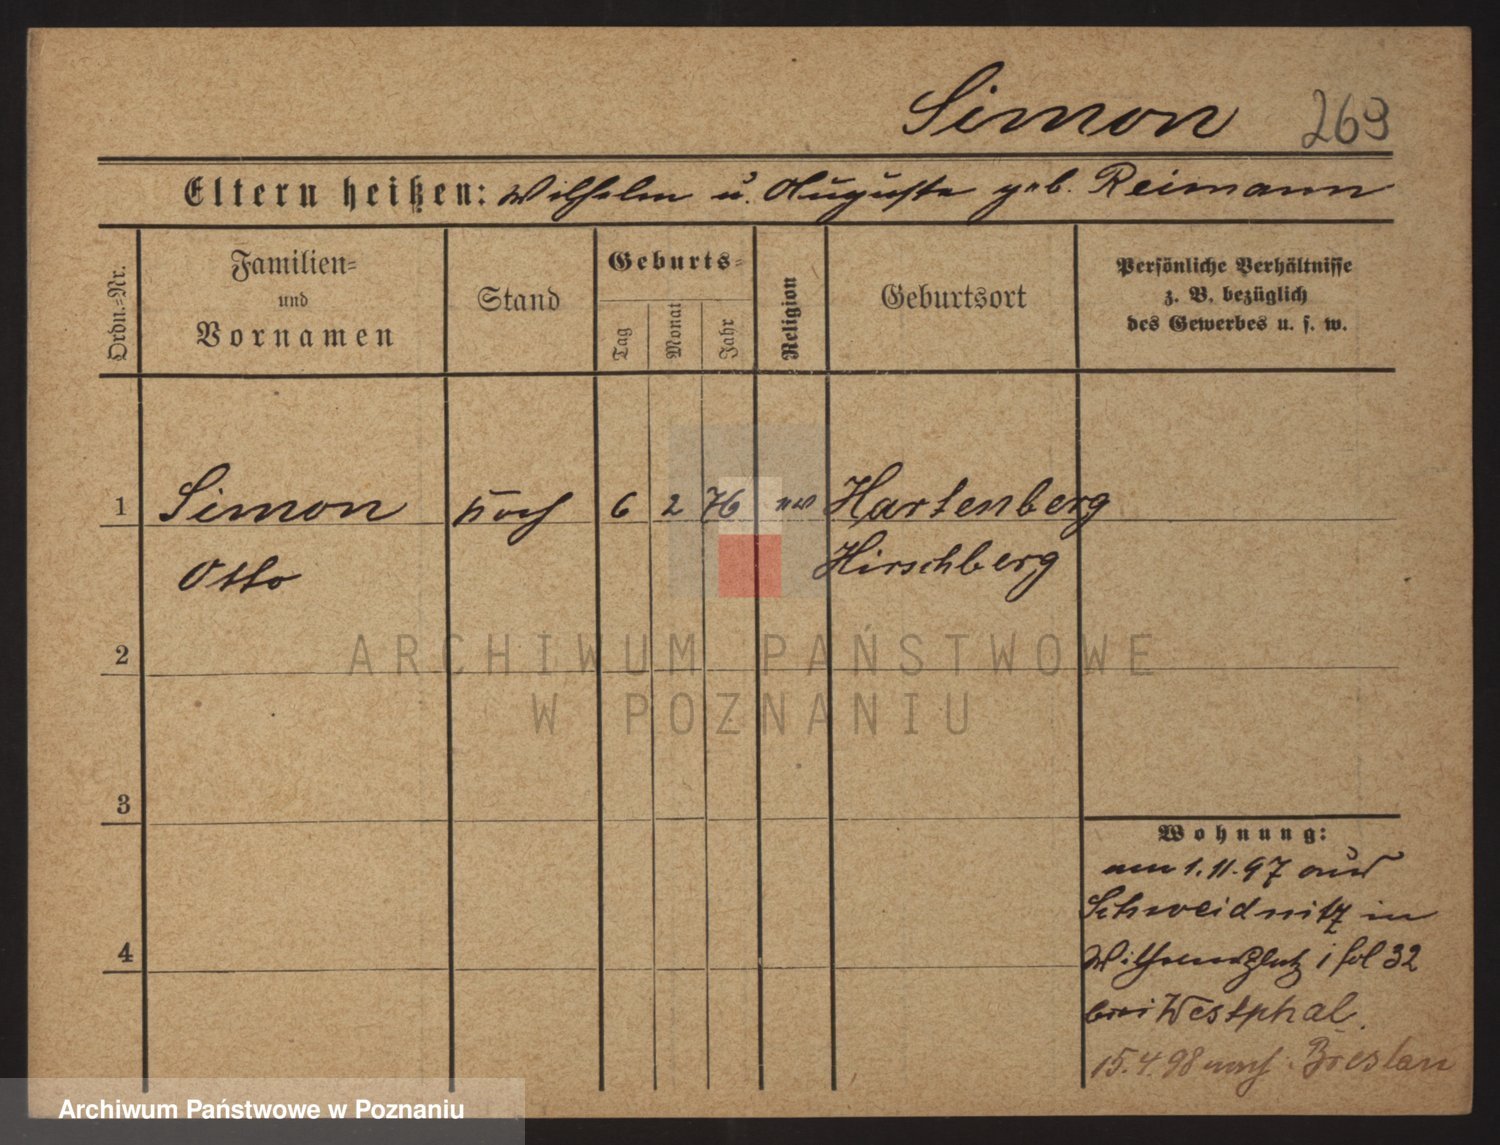 Simon 269
Eltern heißen: Wilhelm u. Auguste geb. Reimann
Ordn.=Nr.
Familien=
und
Vornamen
Stand
Geburts=
Tag
Monat
Jahr
Religion
Geburtsort
Persönliche Verhältnisse
z. B. bezüglich
des Gewerbes u. s. w.
1 Simon Koch 6 2 76 ev Hartenberg
Otto Hirschberg
2
ARCHIWUM PAŃSTWOWE
W POZNANIU
3
Wohnung:
am 1.11.97 aus
Schweidnitz in
4
Wilhelmsplatz 32
bei Westphal.
15.4.98 nach Breslau
Archiwum Państwowe w Poznaniu